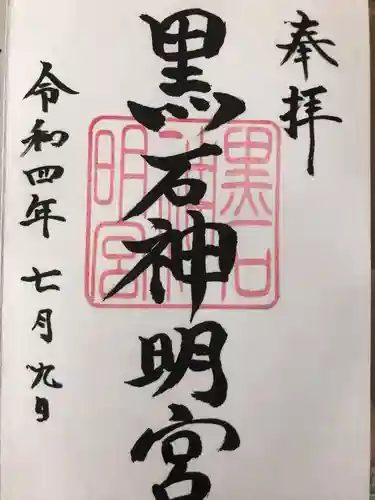 奉拝
黒石神明宮
黒石
神明宮
令和四年七月九日